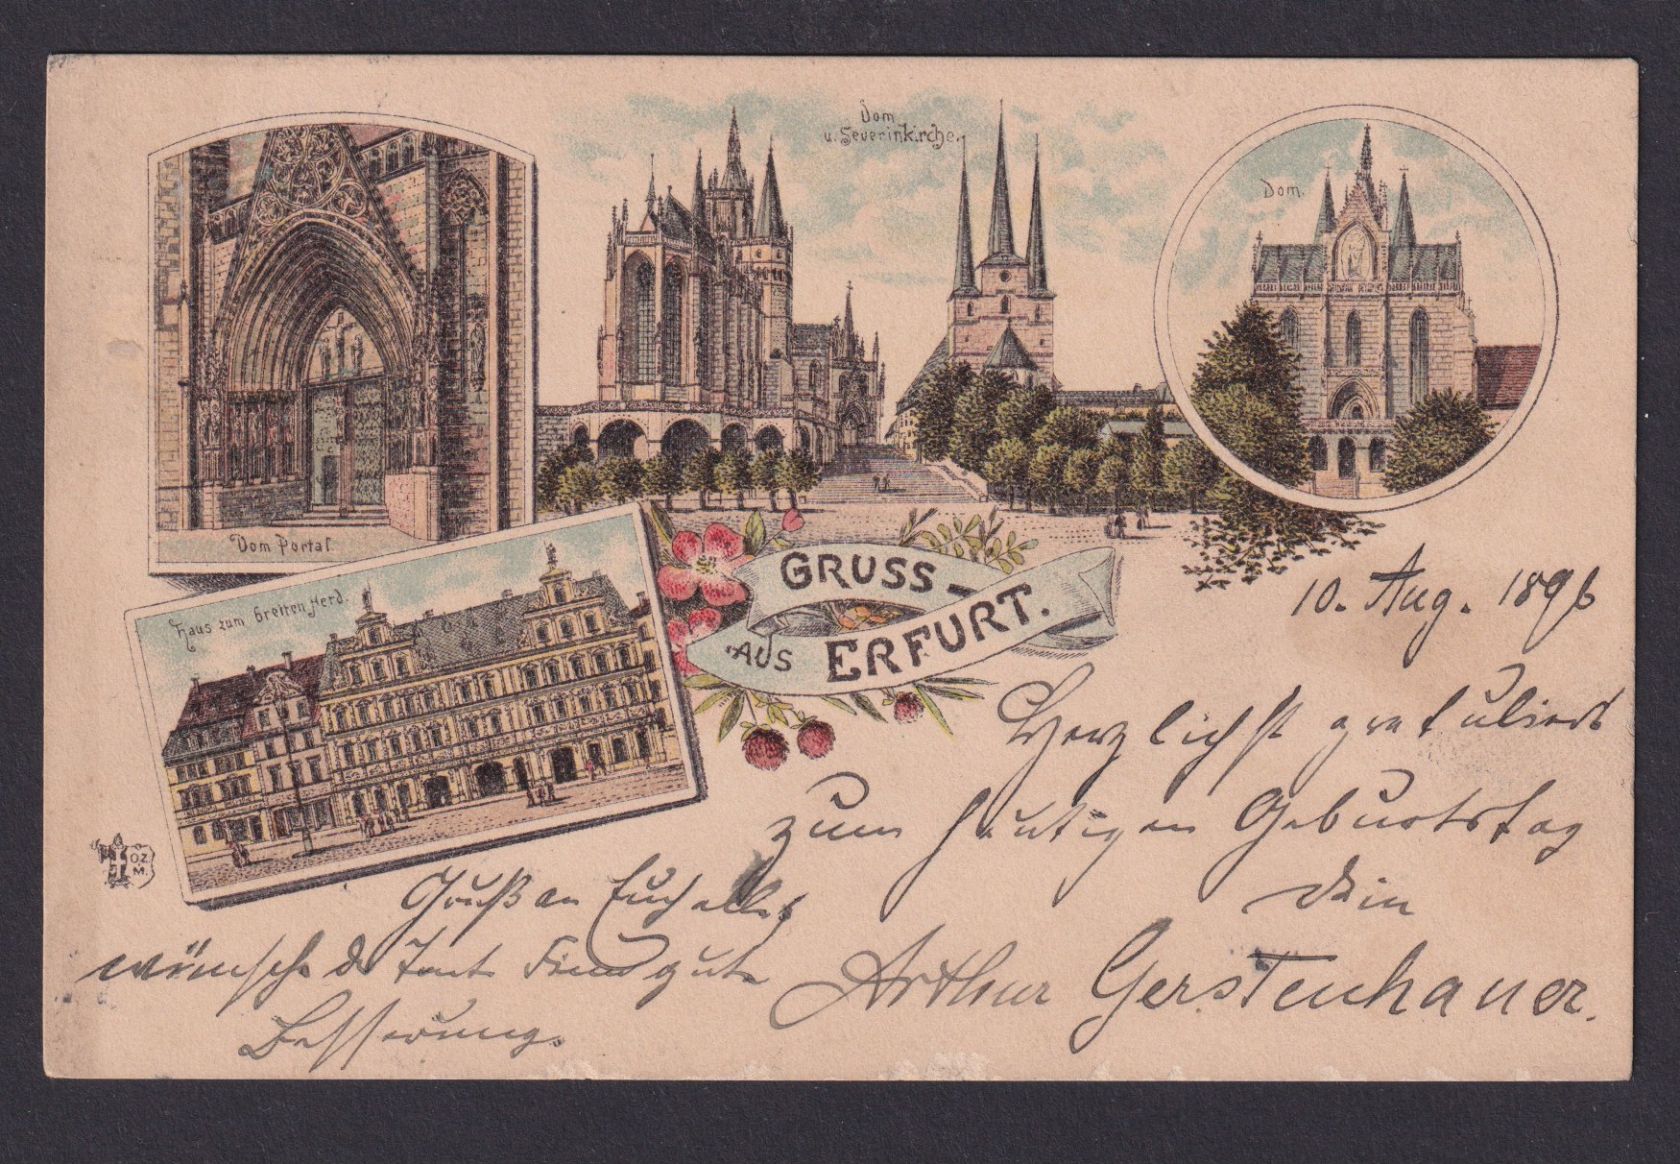 Dom
u. Severinkirche.
Dom.
Dom Portal
Haus zum breiten Herd.
GRUSS
AUS ERFURT.
O.Z.
M.
10. Aug. 1896
Herzlichst gratuliert
zum heutigen Geburtstag
Dein
Arthur Gerstenhauer.
Gruß an Euch alle,
wünsche d. Tante gute
Besserung.